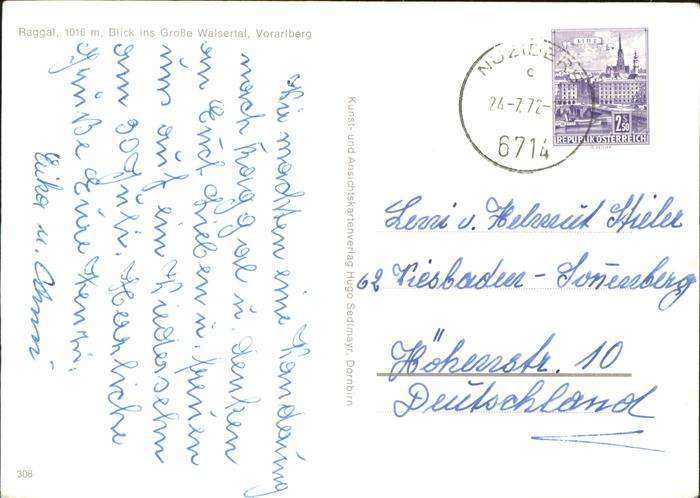 Raggal, 1016 m, Blick ins Große Walsertal, Vorarlberg
Wir machten eine Wanderung
nach Raggal u. denken
an Euch Lieben u. freuen
uns auf ein Wiedersehn
am 30. Juli. Herzliche
Grüße Eure
u. Anni
Kunst- und Ansichtskartenverlag Hugo Sedlmayr, Dornbirn
308
NÜZIDERS
c
24-7.72-
6714
LINZ
2.50
REPUBLIK ÖSTERREICH
u. Helmut Stieler
62 Wiesbaden-Sonnenberg
Höhenstr. 10
Deutschland